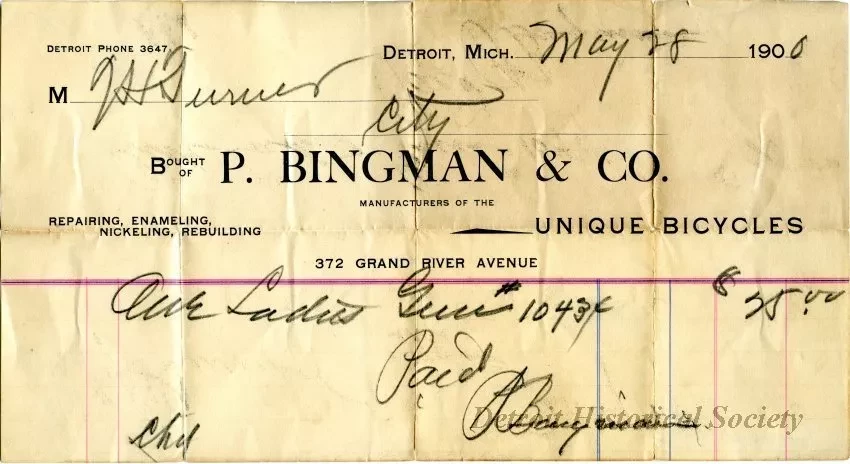 DETROIT PHONE 3647.
DETROIT, MICH. May 28 1900
M Turner
City
BOUGHT OF P. BINGMAN & CO.
MANUFACTURERS OF THE
REPAIRING, ENAMELING,
NICKELING, REBUILDING
UNIQUE BICYCLES
372 GRAND RIVER AVENUE
One Ladies # 10434 $ 25.00
Paid
P Bingman
Detroit Historical Society